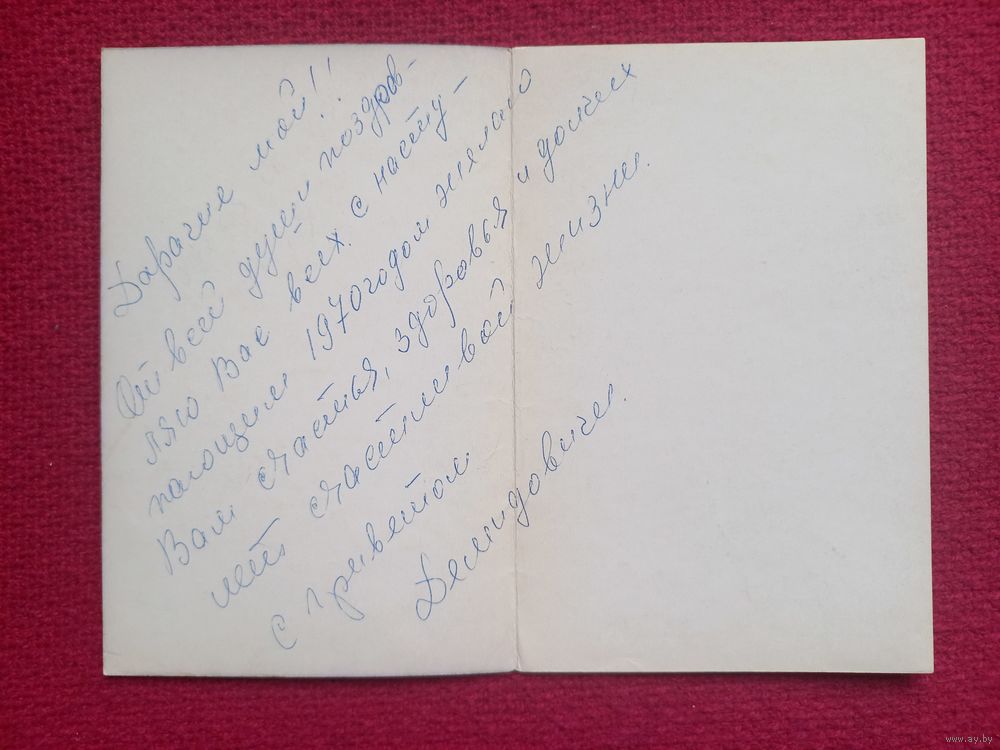 Дарагие мои!!
От всей души поздрав-
ляю Вас всех с насту-
пающим 1970 годом желаю
Вам счастья, здоровья и долгих
лет счастливой жизни.
с приветом
Демидовичи.
www.ay.by